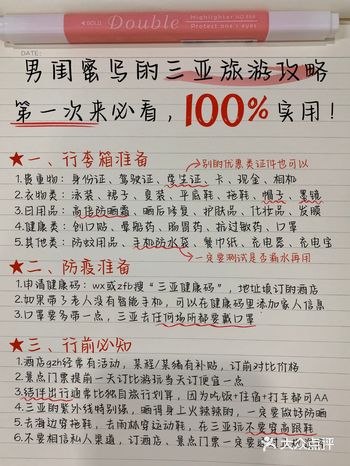 BOLD Double Highlighter NO.898
Protect one's eyes
DATE:
男闺蜜写的三亚旅游攻略
第一次来必看，100%实用！
★一、行李箱准备
别的优惠类证件也可以
1.贵重物：身份证、驾驶证、学生证、卡、现金、相机
2.衣物类：泳装、裙子、夏装、平底鞋、拖鞋、帽子、墨镜
3.日用品：高倍防晒霜、晒后修复、护肤品、化妆品、发膜
4.健康类：创口贴、晕船药、肠胃药、抗过敏药、口罩
5.其他类：防蚊用品、手机防水袋、餐巾纸、充电器、充电宝
一定要测试是否漏水再用
★二、防疫准备
1.申请健康码：wx或zfb搜“三亚健康码”，地址填订的酒店
2.如果带了老人没有智能手机，可以在健康码里添加家人信息
3.口罩要多带一点，三亚去任何场所都要戴口罩
★三、行前必知
1.酒店gzh经常有活动，某程/某猪有补贴，订前对比价格
2.景点门票提前一天订比游玩当天订便宜一点
3.结伴出行通常比独自旅行划算，因为吃饭+住宿+打车都可AA
4.三亚的紫外线特别强，晒得身上火辣辣的，一定要做好防晒
5.去海边穿拖鞋，去雨林穿运动鞋，在三亚玩不要穿高跟鞋
6.不要相信私人渠道，订酒店、景点门票一定要
大众点评